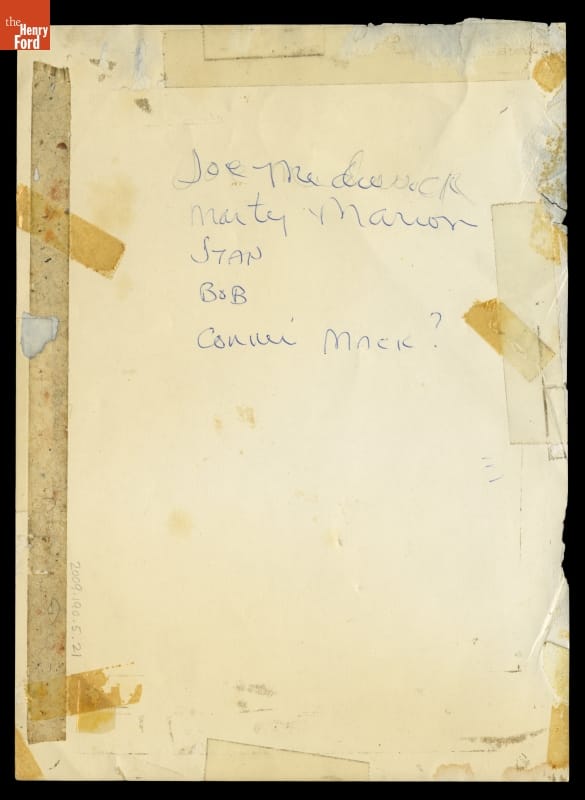 the
Henry
Ford
Joe Medwick
Marty Marion
STAN
BOB
Connie MACK?
2009.190.5.21